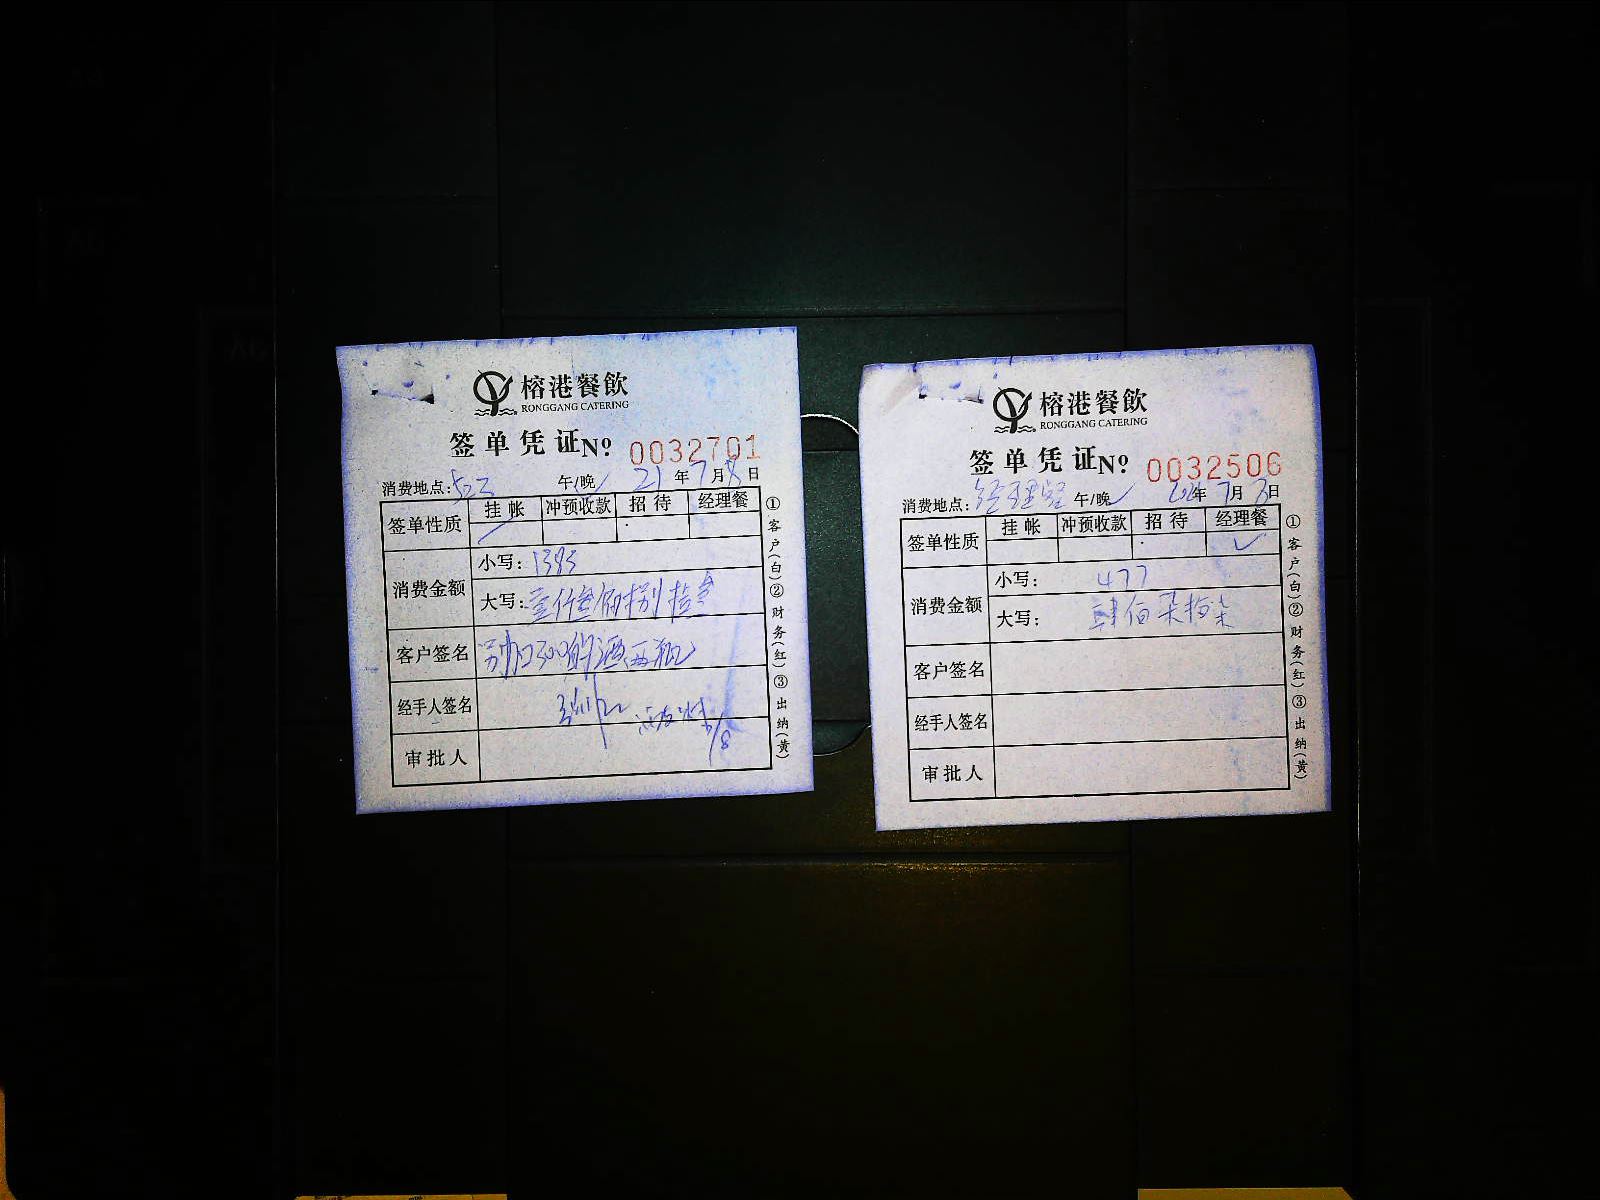 榕港餐飲
RONGGANG CATERING
签单凭证№ 0032701
消费地点:523 午/晚✓ 21年7月8日
签单性质 挂帐 冲预收款 招待 经理餐
消费金额
小写:1383
大写:壹仟叁佰捌拾叁
客户签名 另加300的酒两瓶
经手人签名
审批人
①客户(白)②财务(红)③出纳(黄)
榕港餐飲
RONGGANG CATERING
签单凭证№ 0032506
消费地点:经理 午/晚✓ 年7月8日
签单性质 挂帐 冲预收款 招待 经理餐
✓
消费金额
小写:477
大写:肆佰柒拾柒
客户签名
经手人签名
审批人
①客户(白)②财务(红)③出纳(黄)